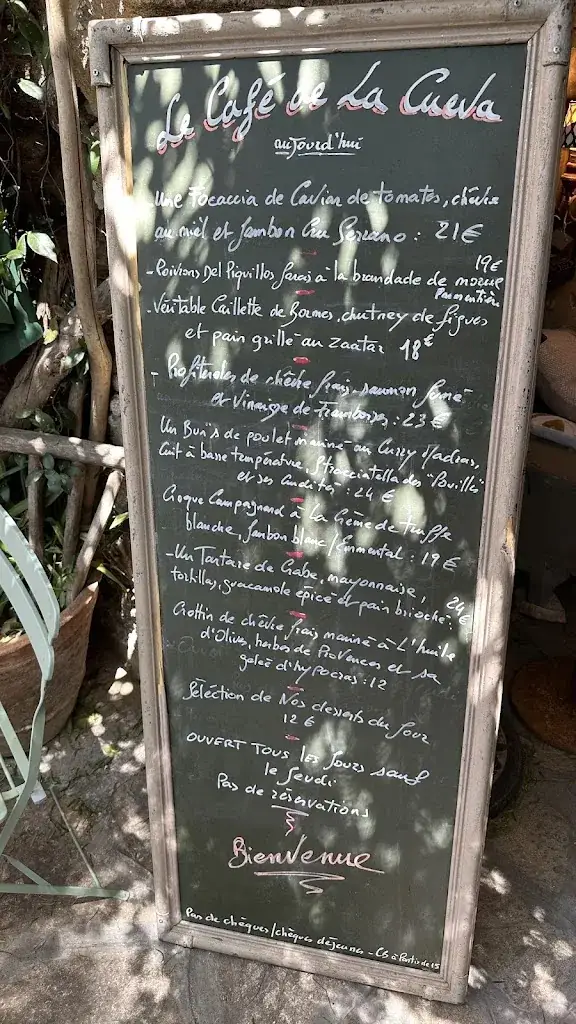 Le Café de La Cueva
aujourd'hui
- Une Focaccia de Caviar de tomates, chèvre
au miel et Jambon Cru Serrano : 21€
- Poivrons Del Piquillos farcis à la brandade de morue 19€
Parmentière
- Véritable Caillette de Bormes, chutney de figues
et pain grillé au zaatar 18€
- Profiteroles de chèvre frais-saumon fumé
et Vinaigre de Framboises : 23€
Un Bun's de poulet mariné au Curry Madras,
Cuit à basse température, Stracciatella des "Pouilles"
et ses Crudités : 24€
Croque Campagnard à la Crème de truffe
blanche, Jambon blanc/Emmental : 19€
- Un Tartare de Crabe, mayonnaise,
tortillas, guacamole épicé et pain brioché : 24€
Crottin de chèvre frais mariné à L'huile
d'Olives, herbes de Provences et sa
gelée d'hypocras : 12
Sélection de Nos desserts du Jour
12€
OUVERT TOUS les Jours sauf
le Jeudi
Pas de réservations
Bienvenue
Pas de chèques/chèques déjeuner - CB à Partir de 15